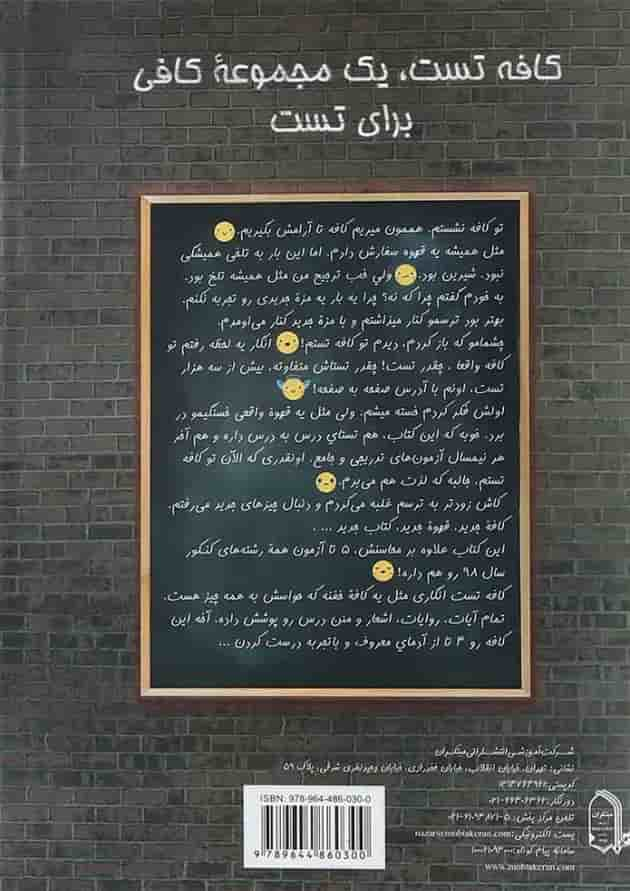 کافه تست، یک مجموعهٔ کافی
برای تست
تو کافه نشستم. هممون میریم کافه تا آرامش بگیریم.
مثل همیشه یه قهوه سفارش دادم. اما این بار به تلخی همیشگی
نبود. شیرین بود. ولی خب ترجیح من مثل همیشه تلخ بود.
به خودم گفتم چرا که نه؟ چرا یه بار یه مزهٔ جدیدی رو تجربه نکنم.
بهتر بود ترسمو کنار میزاشتم و با مزهٔ جدید کنار می‌اومدم.
چشمامو که باز کردم، دیدم تو کافه تستم! انگار یه لحظه رفتم تو
کافه واقعا. چقدر تست! چقدر تستاش متفاوته. بیش از سه هزار
تست، اونم با آدرس صفحه به صفحه!
اولش فکر کردم خسته میشم. ولی مثل یه قهوهٔ واقعی خستگیمو در
برد. خوبه که این کتاب، هم تستای درس به درس داره و هم آخر
هر نیمسال آزمون‌های تدریجی و جامع. اونقدری که الآن تو کافه
تستم. جالبه که لذت هم می‌برم.
کاش زودتر به ترسم غلبه می‌کردم و دنبال چیزهای جدید می‌رفتم.
کافهٔ جدید. قهوهٔ جدید. کتاب جدید ... .
این کتاب علاوه بر محاسنش، ۵ تا آزمون همهٔ رشته‌های کنکور
سال ۹۸ رو هم داره!
کافه تست انگاری مثل یه کافهٔ خفنه که حواسش به همه چیز هست.
تمام آیات، روایات، اشعار و متن درس رو پوشش داده. آخه این
کافه رو ۳ تا از آدمای معروف و باتجربه درست کردن ...
شرکت آموزشی انتشاراتی مبتکران
نشانی: تهران، خیابان انقلاب، خیابان فخررازی، خیابان وحیدنظری شرقی، پلاک ۵۹
کدپستی:
دورنگار:
تلفن مرکز پخش:
پست الکترونیکی:
سامانه پیام کوتاه:
www.mobtakeran.com
مبتکران
ISBN: 978-964-486-030-0
9 789644 860300